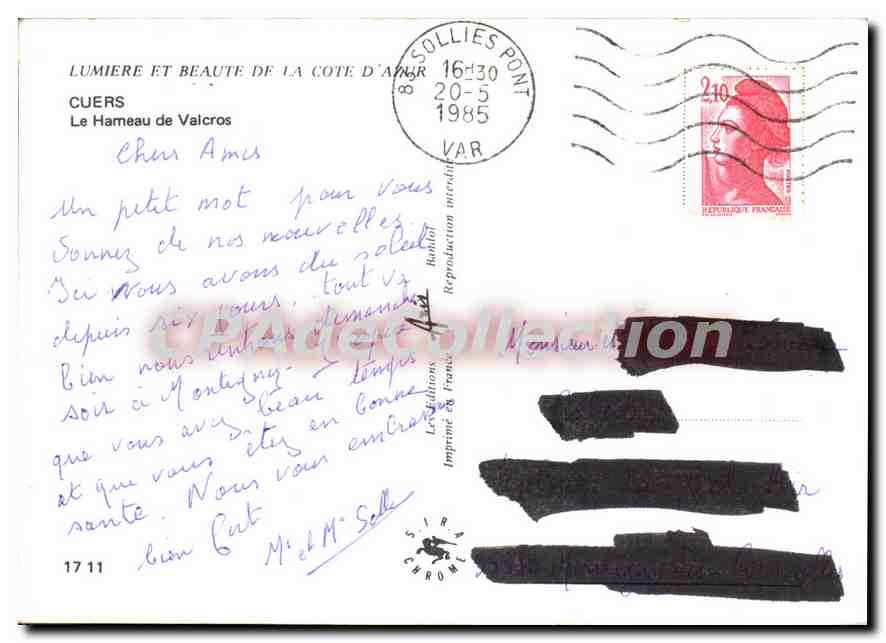 LUMIERE ET BEAUTE DE LA COTE D'AZUR
CUERS
Le Hameau de Valcros
Chers Amis
Un petit mot pour vous
donnez de nos nouvelles.
Ici nous avons du soleil
depuis six jours. tout va
bien nous rentrons dimanche
soir à Montigny. J'espère
que vous avez beau temps
et que vous êtes en bonne
santé. Nous vous embrassons
bien fort
Mr et Me
17 11
83 SOLLIES PONT
16H30
20-5
1985
VAR
2,10
POSTES
REPUBLIQUE FRANÇAISE
Les Editions
"Aris"
Bandol
Imprimé en France
Reproduction interdite
S.I.R.A
CHROME
CPAdeCollection.com
Monsieur
Air